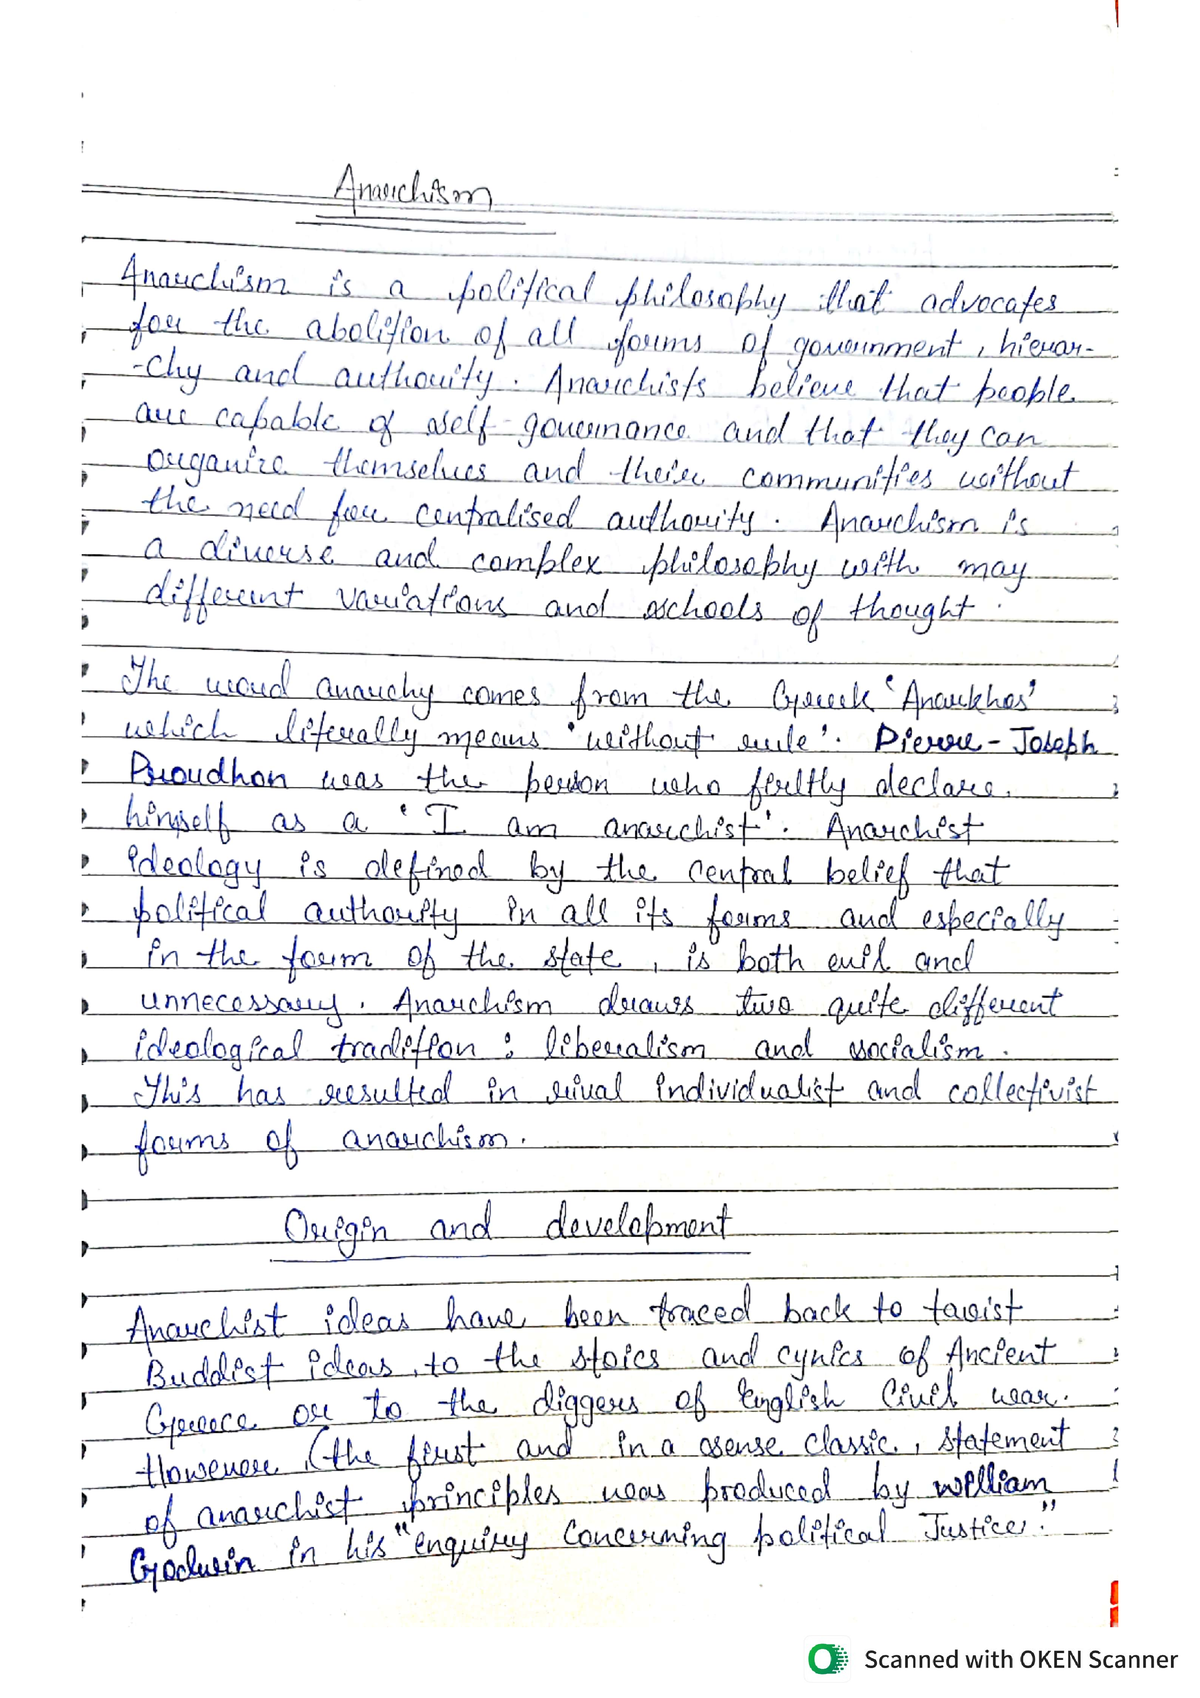 Anarchism
Anarchism is a political philosophy that advocates
for the abolition of all forms of government, hierar-
-chy and authority. Anarchists believe that people
are capable of self-governance and that they can
organize themselves and their communities without
the need for centralised authority. Anarchism is
a diverse and complex philosophy with may
different variations and schools of thought.
The word anarchy comes from the Greek 'Anarkhos'
which literally means 'without rule'. Pierre-Joseph
Proudhon was the person who firstly declare
himself as a 'I am anarchist'. Anarchist
ideology is defined by the central belief that
political authority in all its forms and especially
in the form of the state, is both evil and
unnecessary. Anarchism draws two quite different
ideological tradition: liberalism and socialism.
This has resulted in rival individualist and collectivist
forms of anarchism.
Origin and development
Anarchist ideas have been traced back to taoist
Buddist ideas, to the stoics and cynics of Ancient
Greece or to the diggers of English Civil war.
However, (the first and in a sense classic, statement
of anarchist principles was produced by William
Godwin in his "enquiry Concerning political Justice."
Scanned with OKEN Scanner